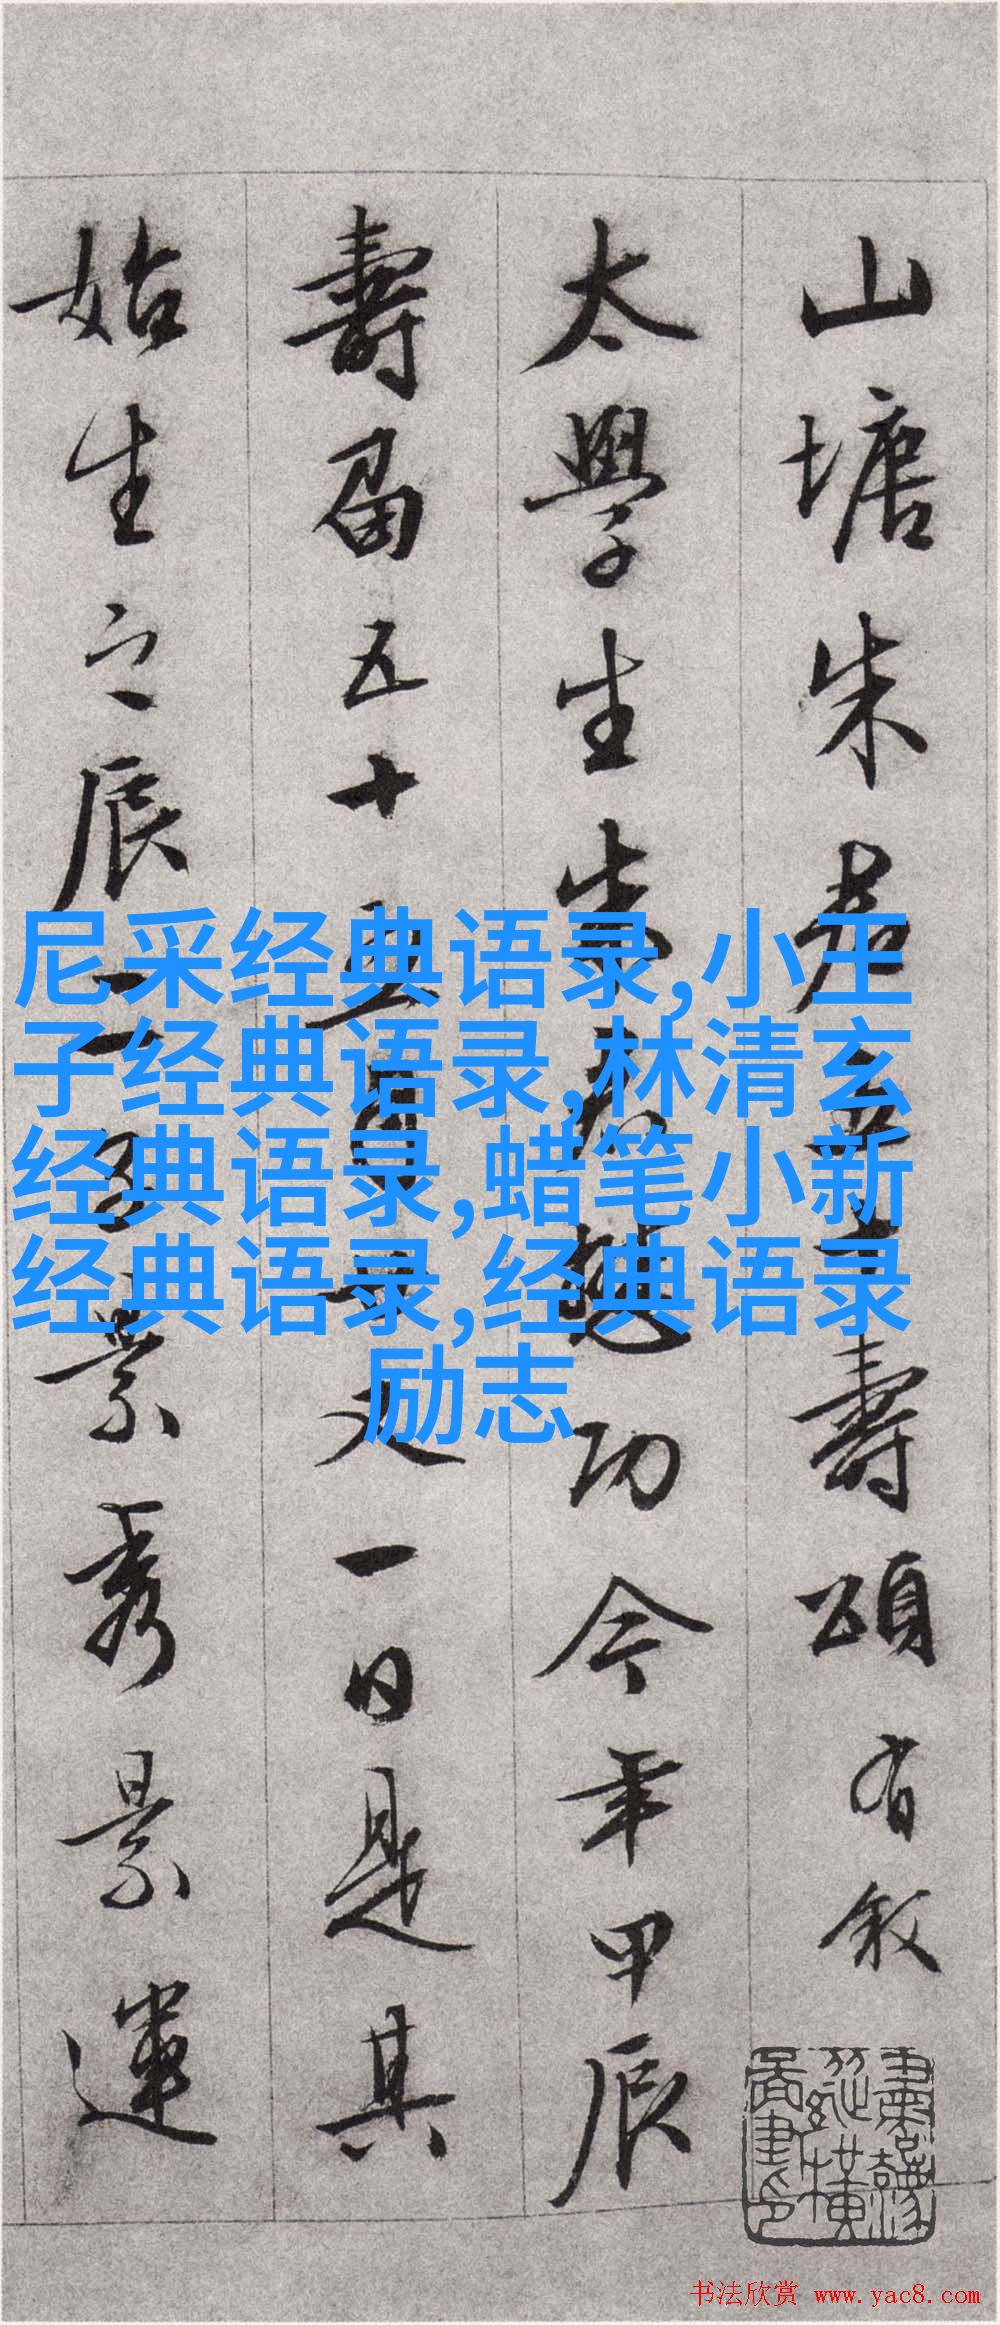 山塘朱君壽頌有敘
太學生朱君懋功今年甲辰
壽届五十一日是其
始生之辰景秀景運
尼采经典语录,小王
子经典语录,林清玄
经典语录,蜡笔小新
经典语录,经典语录
励志
书法欣赏 www.yac8.com